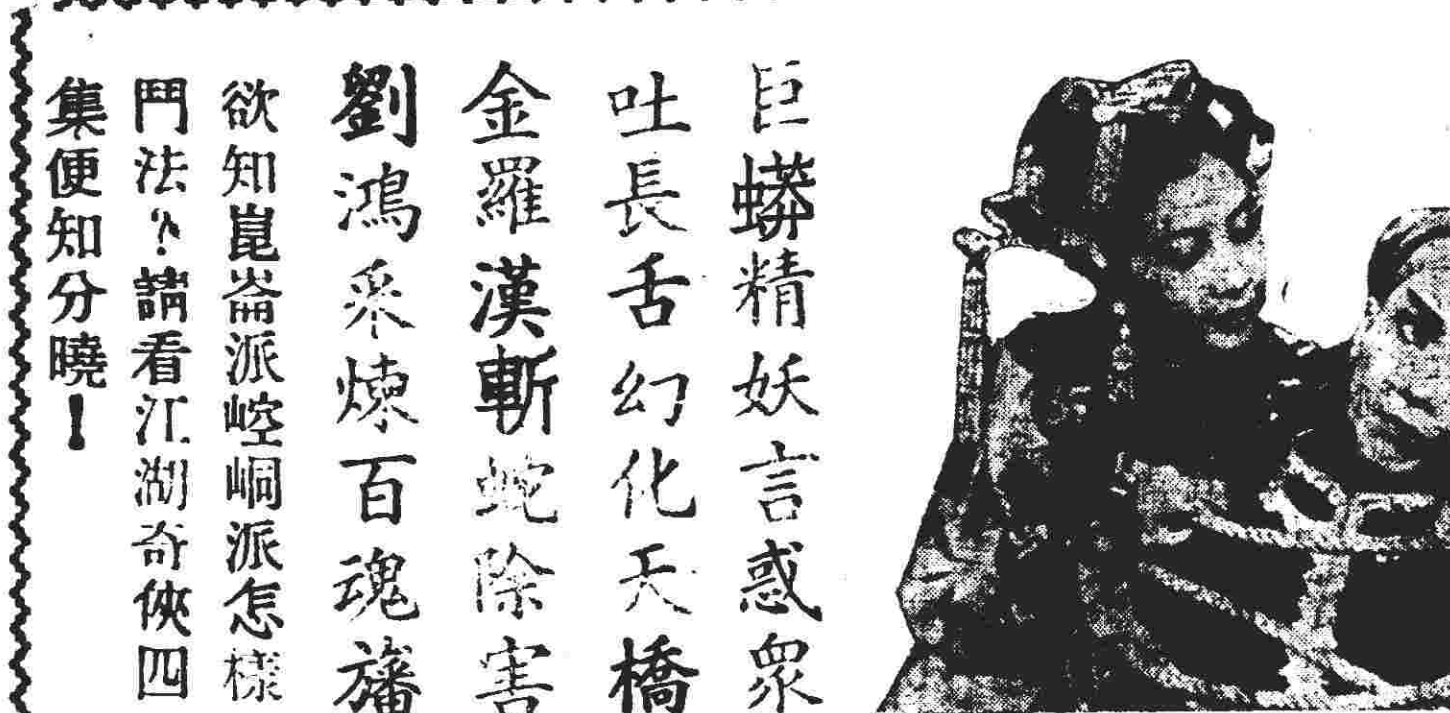 巨蟒精妖言惑眾
吐長舌幻化天橋
金羅漢斬蛇除害
劉鴻采煉百魂旛
欲知崑崙派崆峒派怎樣
鬥法？請看江湖奇俠四
集便知分曉！